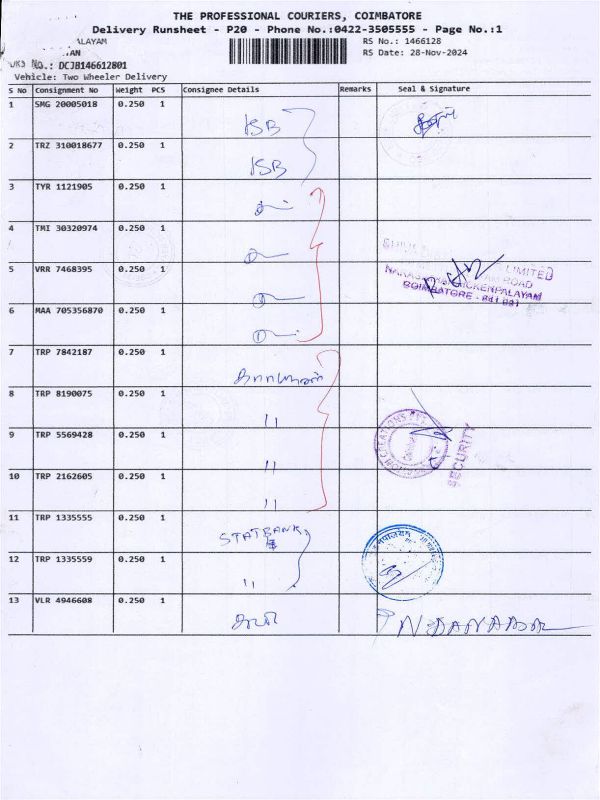 THE PROFESSIONAL COURIERS, COIMBATORE
Delivery Runsheet - P20 - Phone No.:0422-3505555 - Page No.:1
ALAYAM
RS No.: 1466128
AN
RS Date: 28-Nov-2024
No.: DCJB146612801
Vehicle: Two Wheeler Delivery
S No Consignment No Weight PCS Consignee Details Remarks Seal & Signature
1 SMG 20005018 0.250 1 ISB
2 TRZ 310018677 0.250 1 ISB
3 TYR 1121905 0.250 1
4 TMI 30320974 0.250 1
5 VRR 7468395 0.250 1
LIMITED
ROAD
COIMBATORE - 641 031
6 MAA 705356870 0.250 1
7 TRP 7842187 0.250 1
8 TRP 8190075 0.250 1 "
9 TRP 5569428 0.250 1 "
SECURITY
10 TRP 2162605 0.250 1 "
11 TRP 1335555 0.250 1 STATBANK
12 TRP 1335559 0.250 1 "
13 VLR 4946608 0.250 1